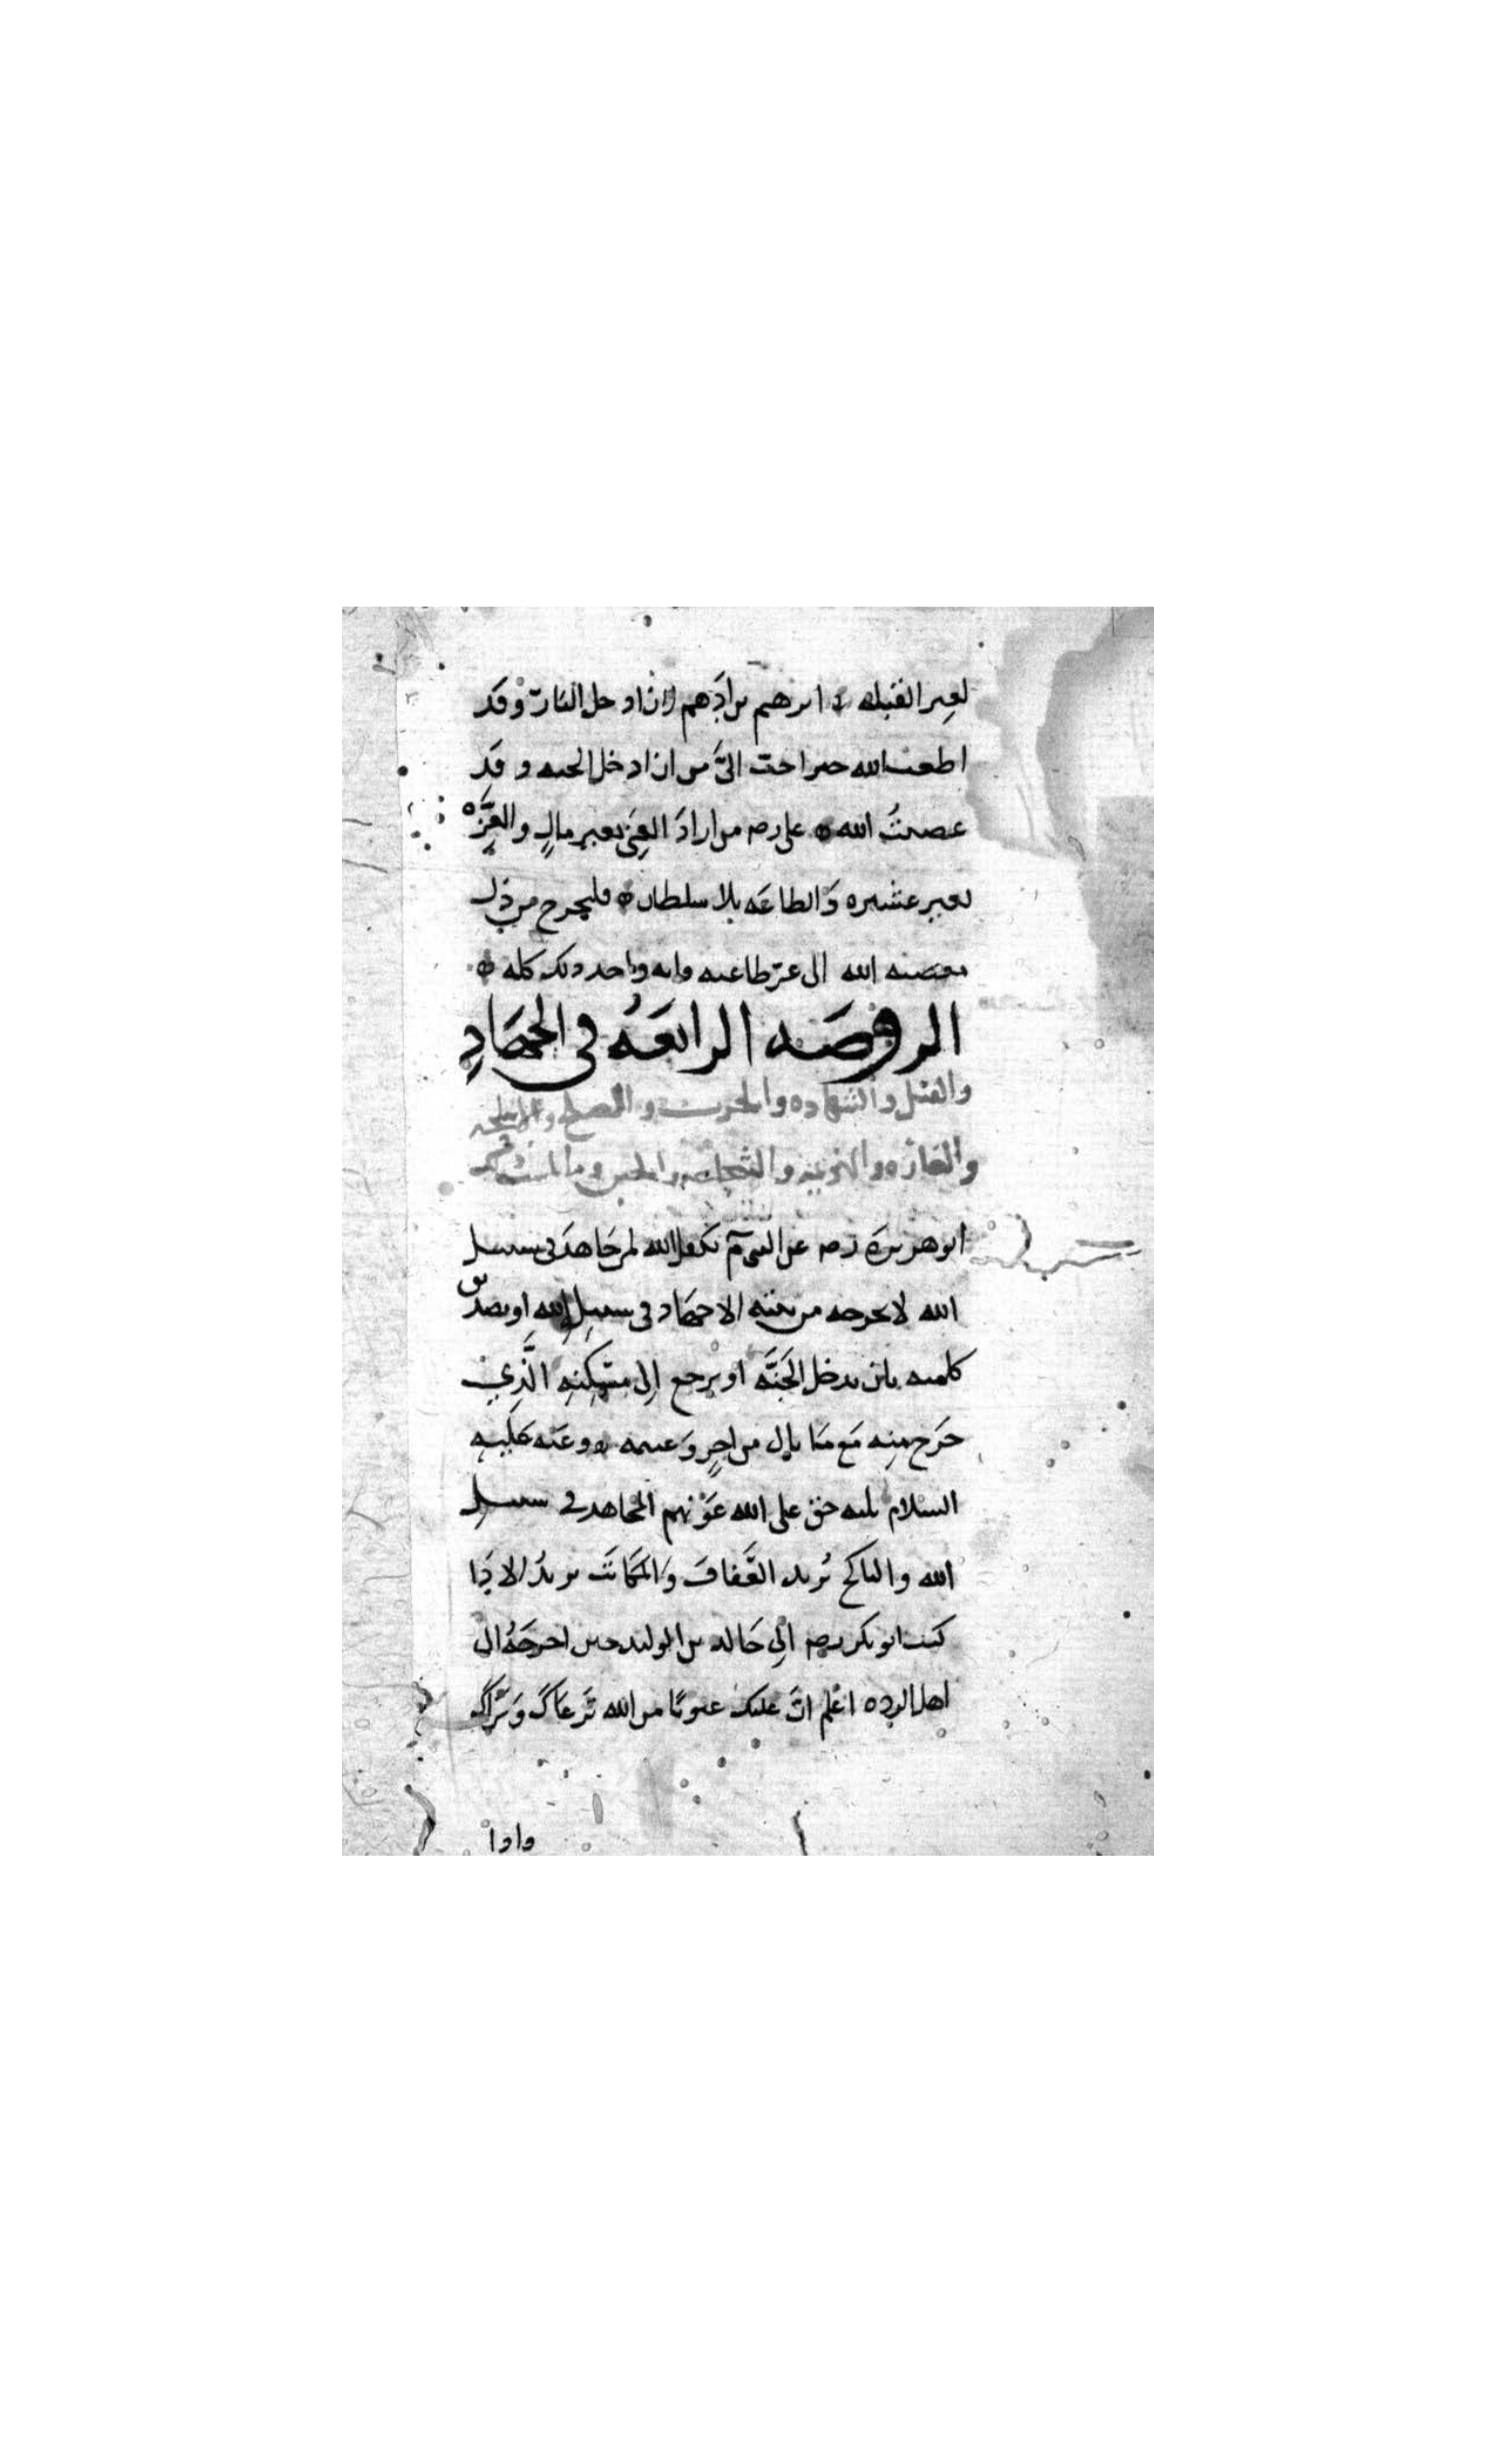 لغير القبلة ه ابرهيم بن ادهم لان ادخل النار وقد
اطعت الله خير احب الىَّ من ان ادخل الجنه وقد
عصيتُ الله ه على رضه من ارادَ الغِنَى بغير مالٍ والعِزَّه
بغير عشيره وَالطاعَه بلا سلطان ه فليخرج من ذل
معصيه الله الى عز طاعته وانه واجد ذلك كله ه
الروضَه الرابعَهُ في الجهَادِ
والقتل والشهاده والحرب و الصلح والاسلحه
والغاره والهزيمه والشجاعه والجبن وما ناسب ذلك
ابو هريرة رضه عن النبى مٓ تكفل الله لمن جَاهدَ في سبيل
الله لا يخرجه من بيته الا جهَاد في سبيل الله او تصديق
كلمته بان يدخل الجَنَّه او يرجع اِلى مسكِنِه الَّذِي
خَرَج مِنه مَع مَا نال من اجرٍ وَ غنيمه ه وعَنه عَليه
السلام ثلثه حق على الله عَوْنهم المجاهد في سبيل
الله والناكح يُريد العَفافَ وَالمكَاتَب يريدُ الادَا
كتب ابو بكر رضه الى خَالد بن الوليد حين اخرجَهُ الى
اهل الرده اعْلم انّ عليك عيونًا من الله تَرعَاكَ وَتَرَاكَ
واذا